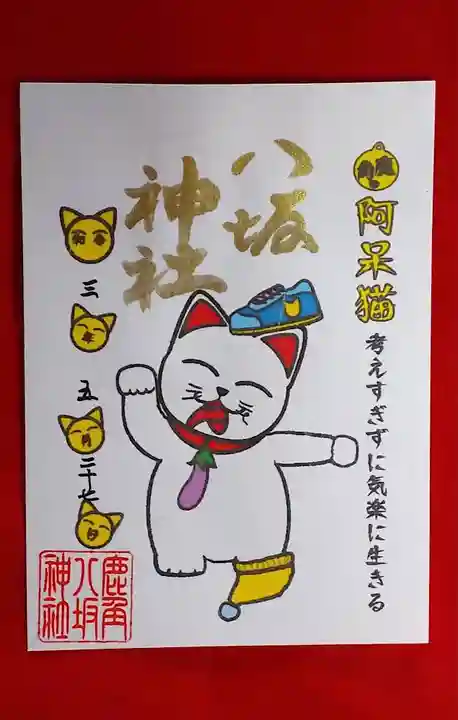 阿呆猫
考えすぎずに気楽に生きる
八坂
神社
令和
三
年
五
月
二十七
日
鹿角
八坂
神社